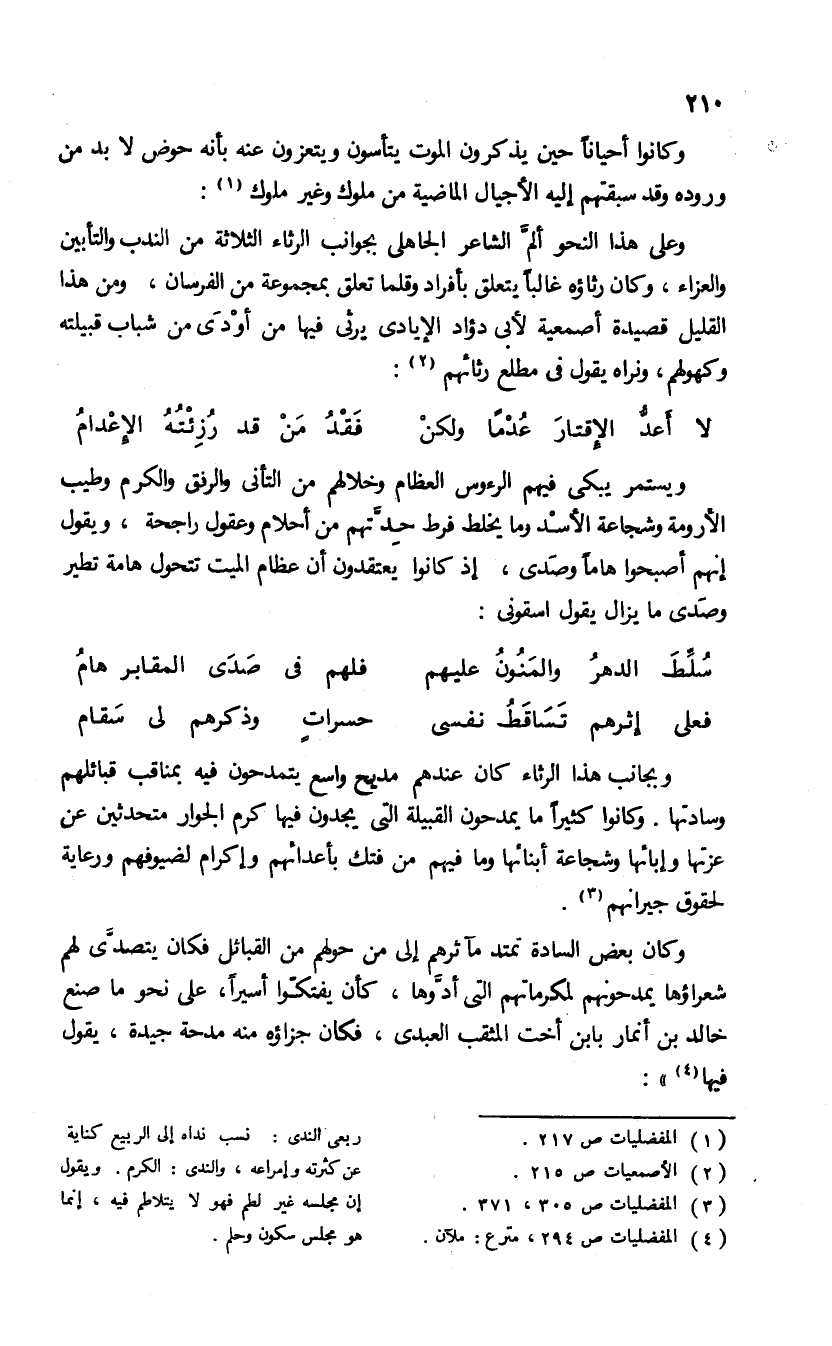 ٢١٠
وكانوا أحياناً حين يذكرون الموت يتأسون ويتعزون عنه بأنه حوض لا بد من
وروده وقد سبقتهم إليه الأجيال الماضية من ملوك وغير ملوك (١) :
وعلى هذا النحو ألمَّ الشاعر الجاهلى بجوانب الرثاء الثلاثة من الندب والتأبين
والعزاء ، وكان رثاؤه غالباً يتعلق بأفراد وقلما تعلق بمجموعة من الفرسان ، ومن هذا
القليل قصيدة أصمعية لأبى دؤاد الإيادى يرثى فيها من أوْدَى من شباب قبيلته
وكهولهم ، ونراه يقول فى مطلع رثائهم (٢) :
لا أَعدُّ الإِقتارَ عُدْمًا ولكنْ فَقْدُ مَنْ قد رُزِئْتُهُ الإِعْدامُ
ويستمر يبكى فيهم الرءوس العظام وخلالهم من التأنى والرفق والكرم وطيب
الأرومة وشجاعة الأسْد وما يخلط فرط حِدَّتهم من أحلام وعقول راجحة ، ويقول
إنهم أصبحوا هاماً وصَدى ، إذ كانوا يعتقدون أن عظام الميت تتحول هامة تطير
وصَدى ما يزال يقول اسقونى :
سُلِّطَ الدهرُ والمَنُونُ عليهم فلهم فى صَدَى المقابر هامُ
فعلى إثرهم تَسَاقَطُ نفسى حسراتٍ وذكرهم لى سَقام
وبجانب هذا الرثاء كان عندهم مديح واسع يتمدحون فيه بمناقب قبائلهم
وسادتها . وكانوا كثيراً ما يمدحون القبيلة التى يجدون فيها كرم الجوار متحدثين عن
عزتها وإبائها وشجاعة أبنائها وما فيهم من فتك بأعدائهم وإكرام لضيوفهم ورعاية
لحقوق جيرانهم (٣) .
وكان بعض السادة تمتد مآثرهم إلى من حولهم من القبائل فكان يتصدَّى لهم
شعراؤها يمدحونهم لمكرماتهم التى أدَّوها ، كأن يفتكّوا أسيراً، على نحو ما صنع
خالد بن أنمار بابن أخت المثقب العبدى ، فكان جزاؤه منه مدحة جيدة ، يقول
فيها (٤) » :
(١) المفضليات ص ٢١٧ .
(٢) الأصمعيات ص ٢١٥ .
(٣) المفضليات ص ٣٠٥ ، ٣٧١ .
(٤) المفضليات ص ٢٩٤ ، مترع : ملآن .
ربعى الندى : نسب نداه إلى الربيع كناية
عن كثرته وإمراعه ، والندى : الكرم . ويقول
إن مجلسه غير لطم فهو لا يتلاطم فيه ، إنما
هو مجلس سكون وحلم .